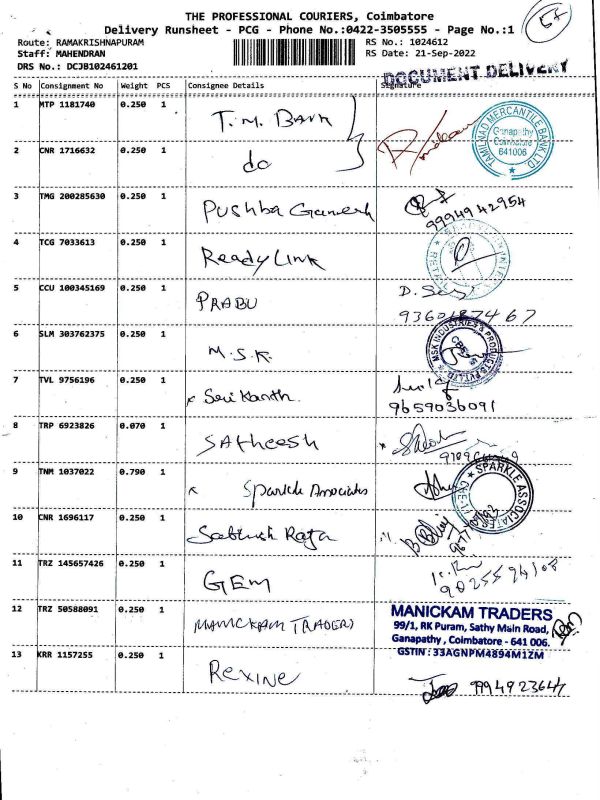 THE PROFESSIONAL COURIERS, Coimbatore
Delivery Runsheet - PCG - Phone No.:0422-3505555 - Page No.:1
Route: RAMAKRISHNAPURAM
RS No.: 1024612
Staff: MAHENDRAN
RS Date: 21-Sep-2022
DRS No.: DCJB102461201
DOCUMENT DELIVERY
S No Consignment No Weight PCS Consignee Details Signature
1 MTP 1181740 0.250 1 T.M. Bank
TAMILNAD MERCANTILE BANK LTD
Ganapathy
Coimbatore
641006
2 CNR 1716632 0.250 1 do
3 TMG 200285630 0.250 1 Pushba Ganesh
9994942954
4 TCG 7033613 0.250 1 Ready Link
5 CCU 100345169 0.250 1 PRABU D.
9360187467
6 SLM 303762375 0.250 1 M.S.K.
MSK INDUSTRIES & PRODUCTS PVT LTD
CBE
7 TVL 9756196 0.250 1 x Sri Kanth.
9659036091
8 TRP 6923826 0.070 1 Satheesh x
9 TNM 1037022 0.790 1 x Sparkle Associates
SPARKLE ASSOCIATES
10 CNR 1696117 0.250 1 Sabtush Raja
11 TRZ 145657426 0.250 1 GEM
9025594108
12 TRZ 50588091 0.250 1 MANICKAM TRADERS
MANICKAM TRADERS
99/1, RK Puram, Sathy Main Road,
Ganapathy , Coimbatore - 641 006.
GSTIN : 33AGNPM4894M1ZM
13 KRR 1157255 0.250 1 Rexine
9994923647